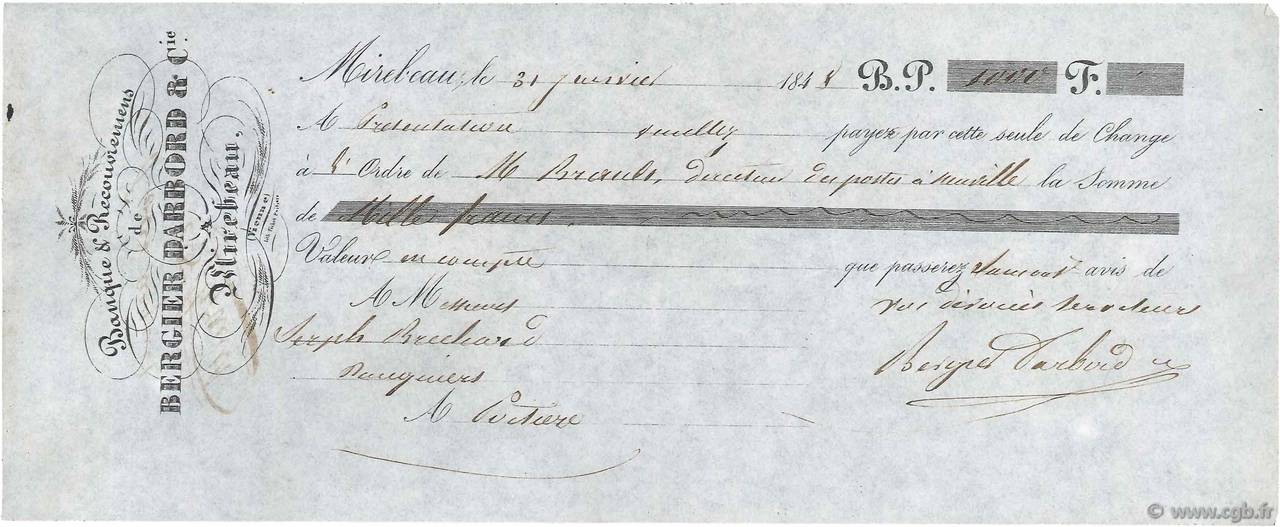 Banque & Recouvremens
de
BERGIER DARBORD & Cie
à
Mirebeau,
(Vienne)
Mirebeau, le 31 Janvier 1848 B.P. 1000 F.
A Présentation veuillez payez par cette seule de Change
à l'Ordre de M Brault, directeur des postes à Neuville la Somme
de Mille francs.
Valeur en compte que passerez suivant avis de
A Messieurs vos dévoués serviteurs
Joseph Bréchard Bergier Darbord
Banquiers
A Poitiers
© www.cgb.fr